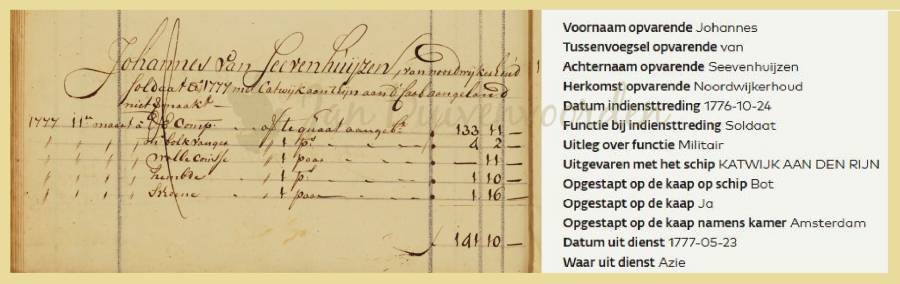 Johannes van Seevenhuijzen, van noordwijkerhoud
soldaat Ao 1777 met Catwijk aan Rijn aan
niet gemaakt
1777 11en maart a Comp te quaat aangeb. 133 11 —
1 pr. 4 2 —
wolle 1 paar — 11 —
hembde 1 pr. 1 10 —
1 paar 1 16 —
141 10 —
Jan Duivenvoorden
Voornaam opvarende Johannes
Tussenvoegsel opvarende van
Achternaam opvarende Seevenhuijzen
Herkomst opvarende Noordwijkerhoud
Datum indiensttreding 1776-10-24
Functie bij indiensttreding Soldaat
Uitleg over functie Militair
Uitgevaren met het schip KATWIJK AAN DEN RIJN
Opgestapt op de kaap op schip Bot
Opgestapt op de kaap Ja
Opgestapt op de kaap namens kamer Amsterdam
Datum uit dienst 1777-05-23
Waar uit dienst Azie